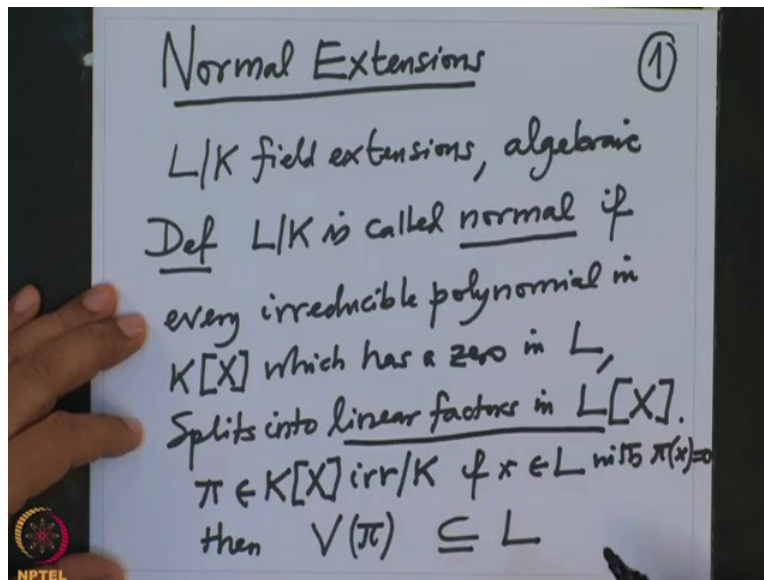 Normal Extensions
①
L/K field extensions, algebraic
Def L/K is called normal if
every irreducible polynomial in
K[X] which has a zero in L,
Splits into linear factors in L[X].
π ∈ K[X] irr/K if x ∈ L with π(x)=0
then V(π) ⊆ L
NPTEL